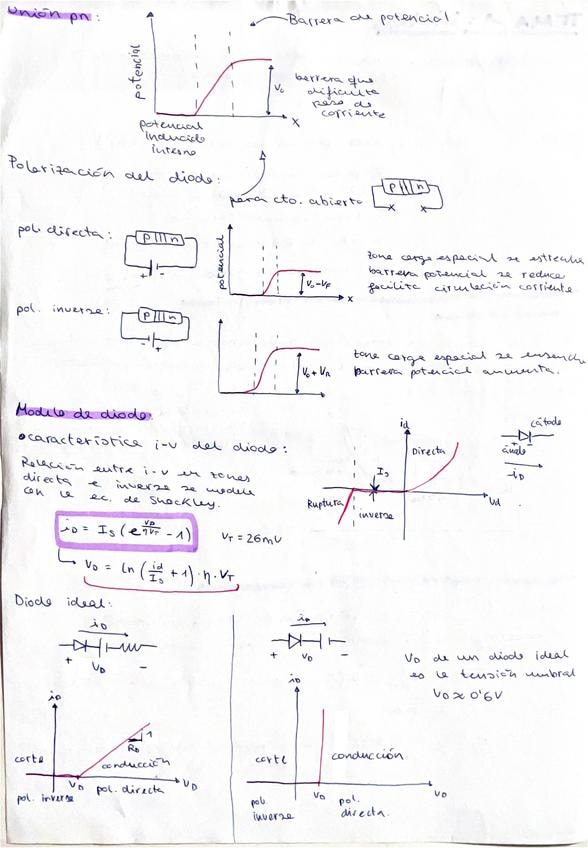 Unión pn:
Barrera de potencial
potencial
V₀
barrera que
dificulta
paso de
corriente
x
potencial
inducido
interno
Polarización del diodo:
para cto. abierto
p n
pol. directa:
p n
+ -
potencial
V₀-VF
x
zona carga especial se estrecha
barrera potencial se reduce
facilita circulación corriente
pol. inversa:
p n
- +
V₀+VR
zona carga especial se ensancha
barrera potencial aumenta.
Modelo de diodo
característica i-v del diodo:
Relación entre i-v en zonas
directa e inversa se modela
con la ec. de Shockley.
id
Directa
Is
Ruptura
inversa
Vd
cátodo
ánodo
+ -
iD
iD = IS (e^(VD/ηVT) - 1)
VT = 26mV
VD = ln (id/IS + 1) · η · VT
Diodo ideal:
iD
+ VD -
iD
1
RD
corte
conducción
VD
VD
pol. inversa
pol. directa
iD
+ VD -
iD
corte
conducción
VD
VD
pol.
inversa
pol.
directa.
VD de un diodo ideal
es la tensión umbral
VD ≈ 0'6V